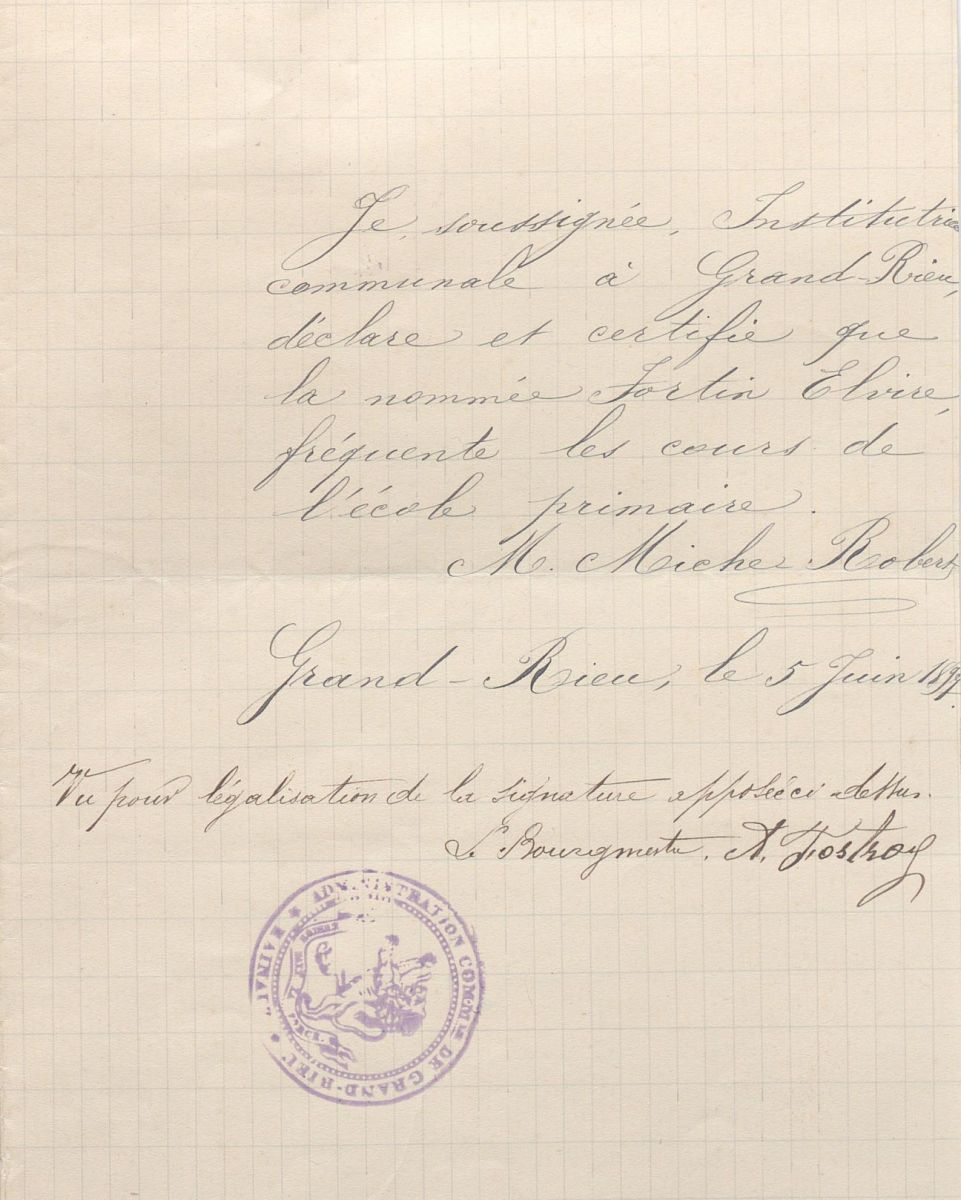 Je, soussignée, Institutrice
communale à Grand-Rieu,
déclare et certifie que
la nommée Fortin Elvire,
fréquente les cours de
l'école primaire.
M. Miche Robert
Grand-Rieu, le 5 Juin 1897.
Vu pour légalisation de la signature apposée ci-dessus.
Le Bourgmestre. A. Fostroy
ADMINISTRATION COMMle DE GRAND-RIEU * HAINAUT *
L'UNION FAIT LA FORCE